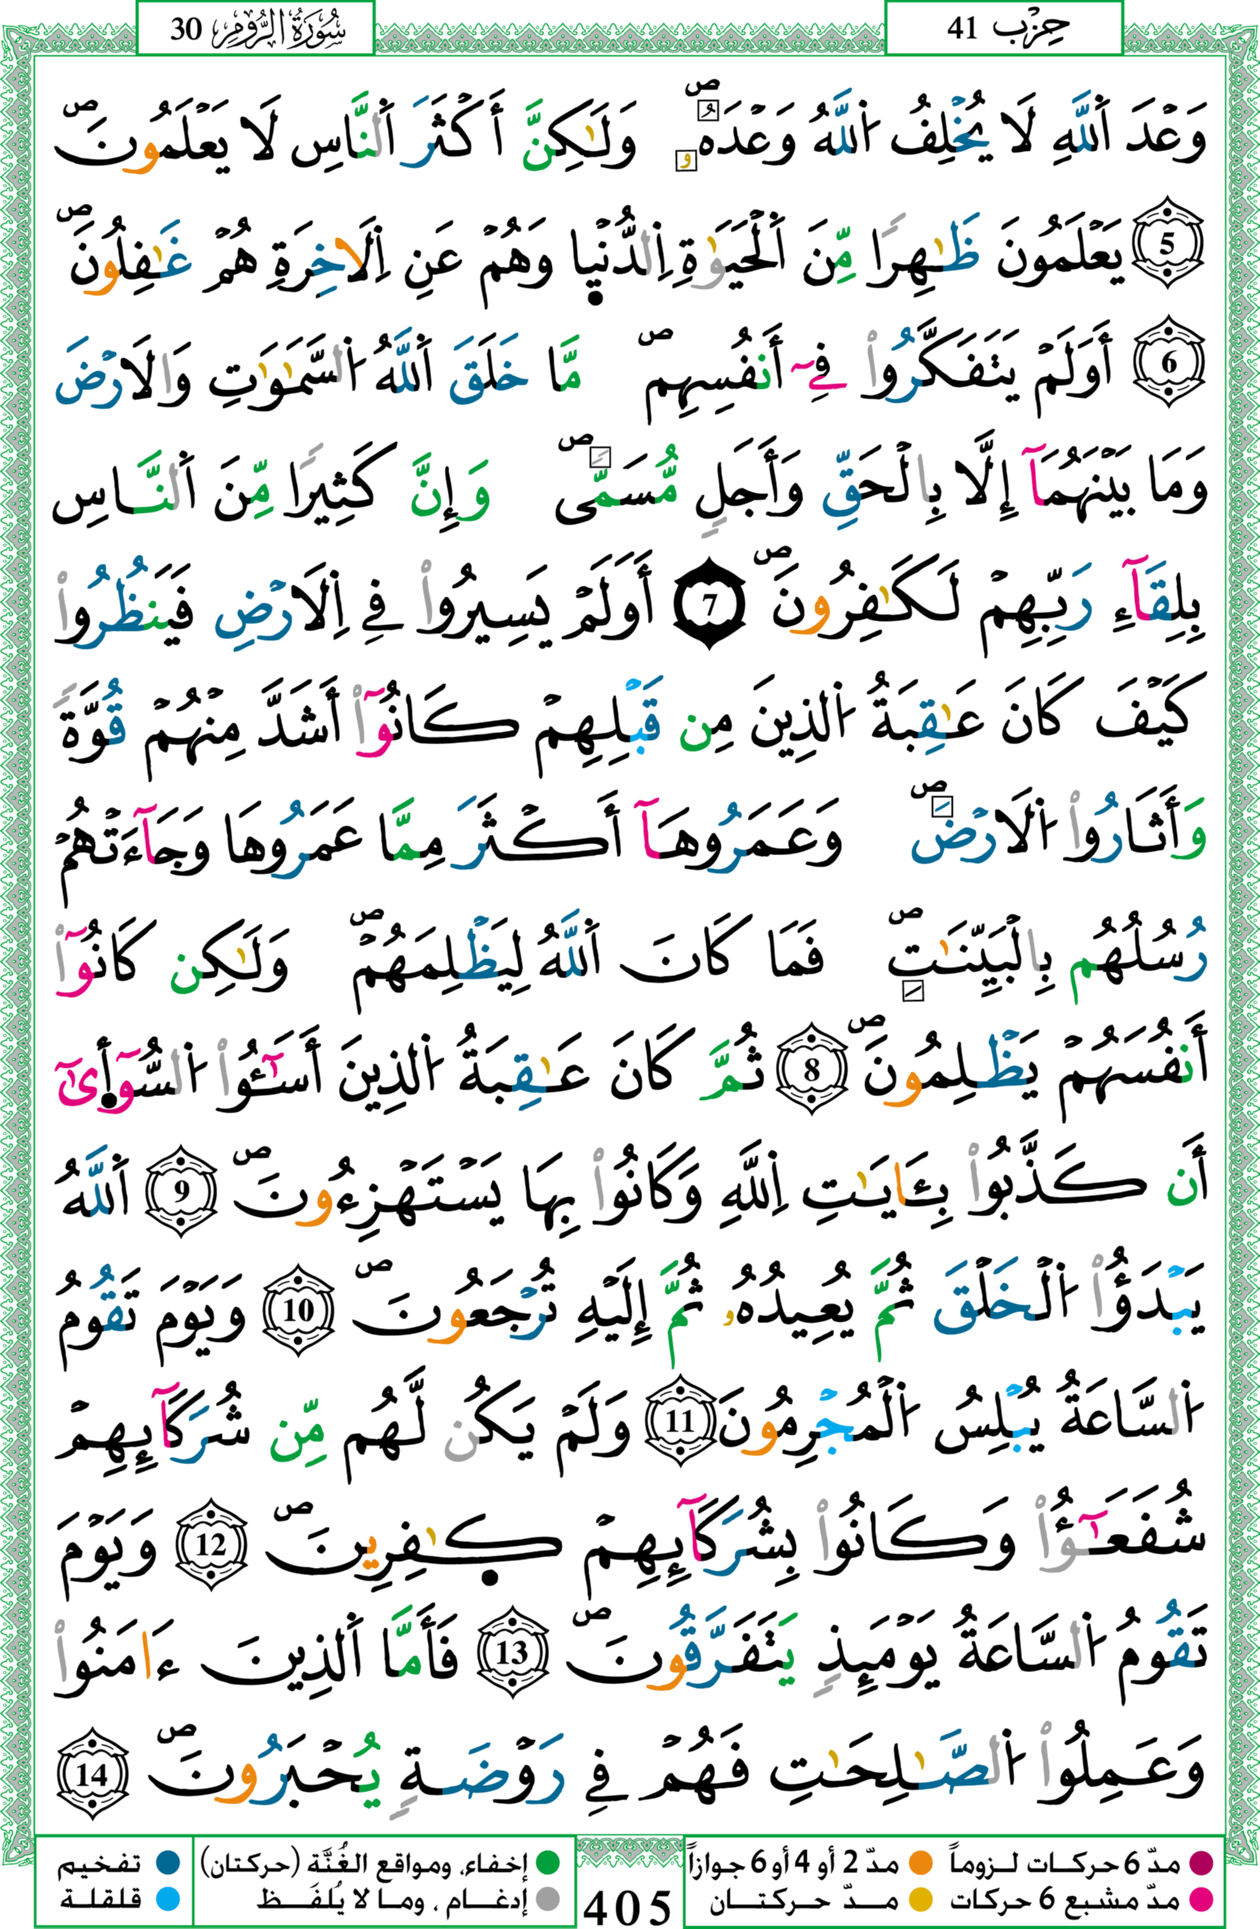 سُورَةُ الرُّومِ 30
حِزْب 41
وَعْدَ اَ۬للَّهِ لَا يُخْلِفُ اُ۬للَّهُ وَعْدَهُۥۖ وَلَٰكِنَّ أَكْثَرَ اَ۬لنَّاسِ لَا يَعْلَمُونَۖ
5 يَعْلَمُونَ ظَٰهِراٗ مِّنَ اَ۬لْحَيَوٰةِ اِ۬لدُّنْي۪ا وَهُمْ عَنِ اِ۬لَاخِرَةِ هُمْ غَٰفِلُونَۖ
6 أَوَلَمْ يَتَفَكَّرُواْ فِےٓ أَنفُسِهِمۖ مَّا خَلَقَ اَ۬للَّهُ اُ۬لسَّمَٰوَٰتِ وَالَارْضَ
وَمَا بَيْنَهُمَآ إِلَّا بِالْحَقِّ وَأَجَلٖ مُّسَمّٗيۖ وَإِنَّ كَثِيراٗ مِّنَ اَ۬لنَّاسِ
بِلِقَآءِ رَبِّهِمْ لَكَٰفِرُونَۖ 7 أَوَلَمْ يَسِيرُواْ فِے اِ۬لَارْضِ فَيَنظُرُواْ
كَيْفَ كَانَ عَٰقِبَةُ اُ۬لذِينَ مِن قَبْلِهِمْ كَانُوٓاْ أَشَدَّ مِنْهُمْ قُوَّةٗ
وَأَثَارُواْ اُ۬لَارْضَۖ وَعَمَرُوهَآ أَكْثَرَ مِمَّا عَمَرُوهَا وَجَآءَتْهُمْ
رُسُلُهُم بِالْبَيِّنَٰتِۖ فَمَا كَانَ اَ۬للَّهُ لِيَظْلِمَهُمْۖ وَلَٰكِن كَانُوٓاْ
أَنفُسَهُمْ يَظْلِمُونَۖ 8 ثُمَّ كَانَ عَٰقِبَةُ اُ۬لذِينَ أَسَٰٓـُٔواْ اُ۬لسُّوٓأ۪ىٰٓ
أَن كَذَّبُواْ بِـَٔايَٰتِ اِ۬للَّهِ وَكَانُواْ بِهَا يَسْتَهْزِءُونَۖ 9 اَ۬للَّهُ
يَبْدَؤُاْ اُ۬لْخَلْقَ ثُمَّ يُعِيدُهُۥ ثُمَّ إِلَيْهِ تُرْجَعُونَۖ 10 وَيَوْمَ تَقُومُ
اُ۬لسَّاعَةُ يُبْلِسُ اُ۬لْمُجْرِمُونَ 11 وَلَمْ يَكُن لَّهُم مِّن شُرَكَآئِهِمْ
شُفَعَٰٓؤُاْ وَكَانُواْ بِشُرَكَآئِهِمْ كٜ۪فِرِينَۖ 12 وَيَوْمَ
تَقُومُ اُ۬لسَّاعَةُ يَوْمَئِذٖ يَتَفَرَّقُونَۖ 13 فَأَمَّا اَ۬لذِينَ ءَامَنُواْ
وَعَمِلُواْ اُ۬لصَّٰلِحَٰتِ فَهُمْ فِے رَوْضَةٖ يُحْبَرُونَۖ 14
مدّ 6 حركات لـزوماً مدّ 2 أو 4 أو 6 جوازاً إخفاء، ومواقع الغُنَّة (حركتان) تفخيم
مدّ مشبع 6 حركات مـدّ حـركتـان إدغـام ، ومـا لا يُلفَـظ قلقلة
405